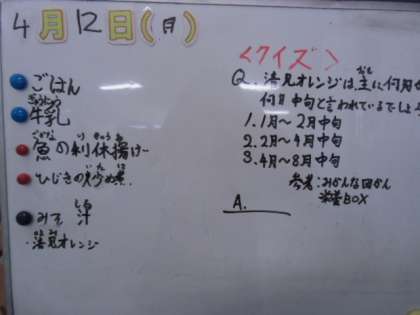 4月12日(月)
ごはん
ぎゅうにゅう
牛乳
さかな りきゅうあ
魚の利休揚げ
いた に
ひじきの炒め煮
しる
みそ汁
清見オレンジ
<クイズ>
Q. 清見オレンジは、主に何月
何月中旬と言われているでしょ
1. 1月~2月中旬
2. 2月~4月中旬
3. 4月~8月中旬
参考:みかんな図かん
栄養BOX
A.